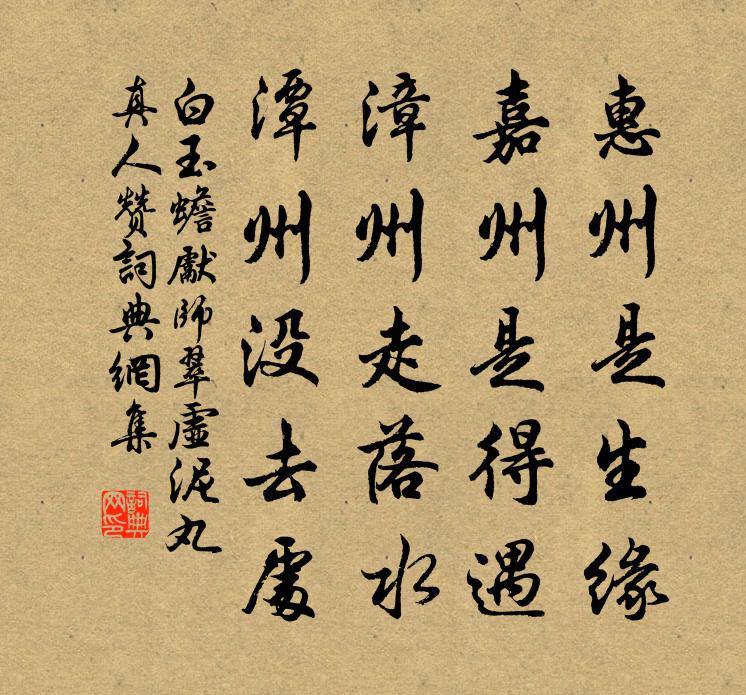 惠州是生緣
嘉州是得遇
漳州走落水
潭州没去處
白玉蟾獻師翠虛泥丸
真人贊詞典網集
詞典網印